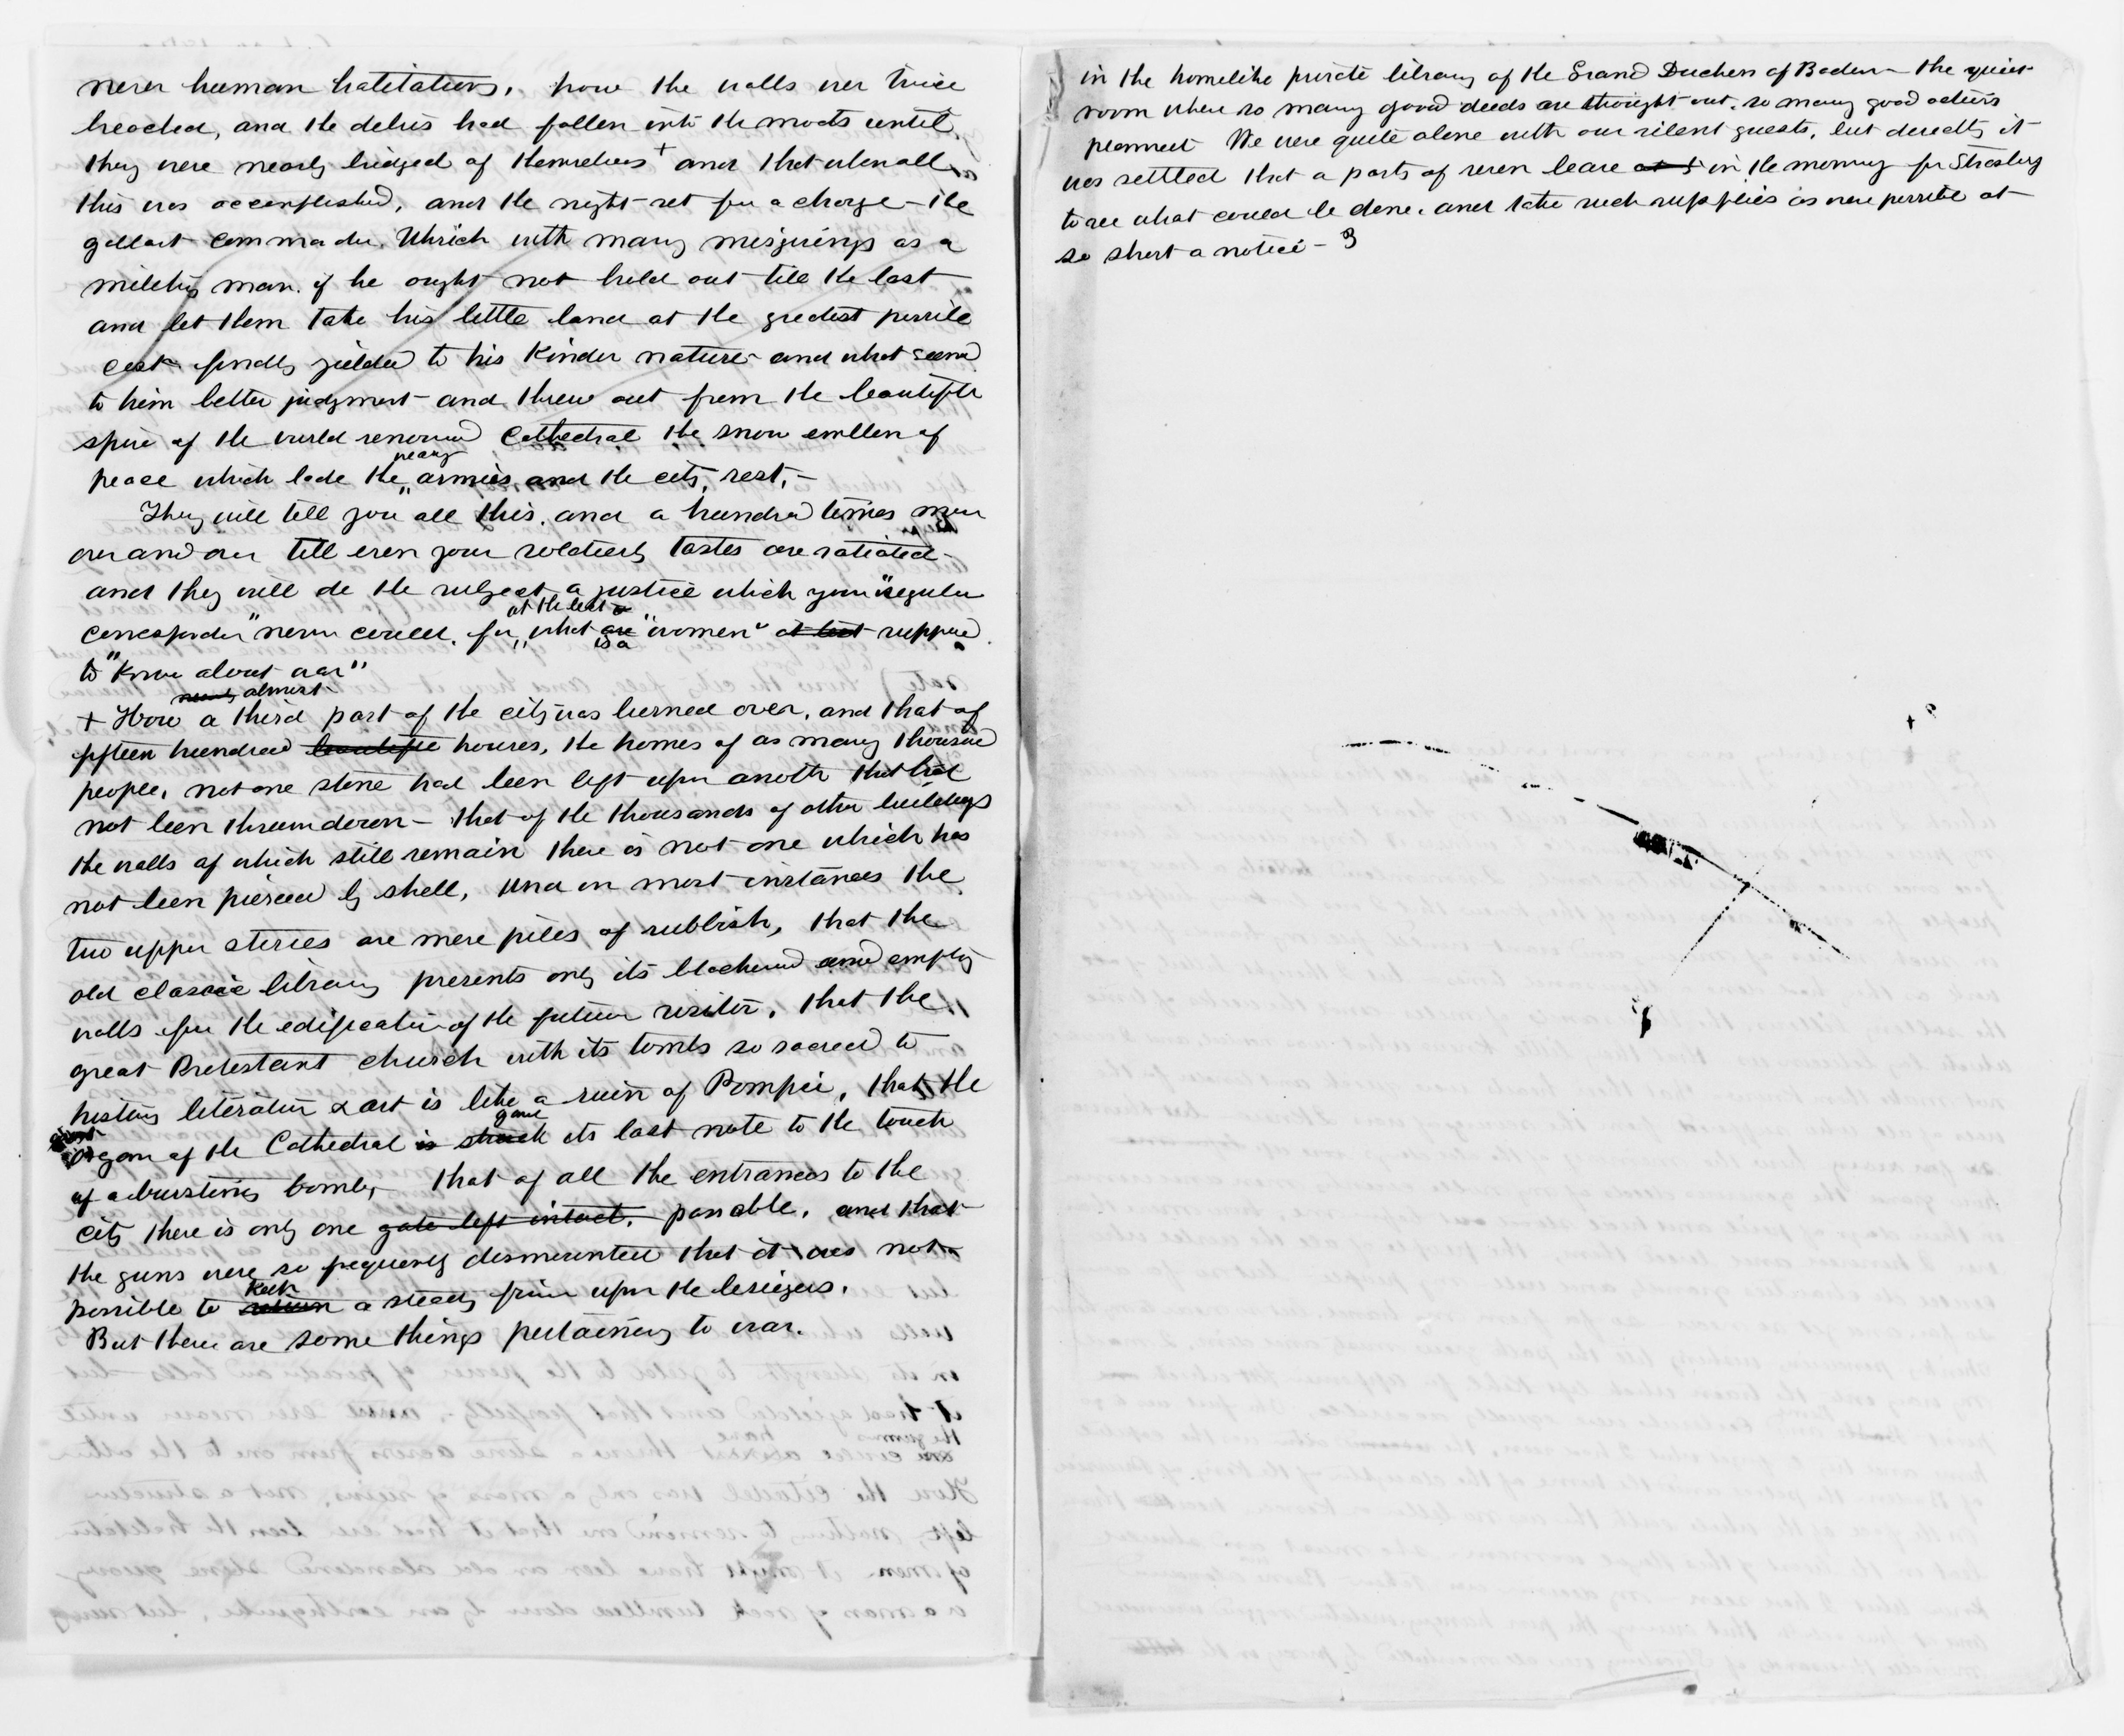 never human habitations. how the walls were twice
breached, and the debris had fallen into the moats until
they were nearly bridged of themselves + and that when all
this was accomplished, and the night set for a charge - the
gallant commander. Uhrich with many misgivings as a
military man. if he ought not hold out till the last
and let them take his little band at the greatest possible
cost finally yielded to his kinder nature - and what seemed
to him better judgment - and threw out from the beautiful
spire of the world renowned Cathedral the snow emblem of
peace which bade the weary armies and the city, rest, -
They will tell you all this. and a hundred times more
over and over till even your soldierly tastes are satiated -
and they will do the subject a justice which your "regular
correspondent" never could. for, at the best what is a "women" supposed
to "know about war"
+ How almost a third part of the city was burned over, and that of
fifteen hundred beautiful houses, the homes of as many thousand
people, not one stone had been left upon another that had
not been thrown down - that of the thousands of other buildings
the walls of which still remain there is not one which has
not been pierced by shell, and in most instances the
two upper stories are mere piles of rubbish, that the
old classic library presents only its blackened and empty
walls for the edification of the future visitor, that the
great Protestant church with its tombs so sacred to
history literature & art is like a ruin of Pompei, that the
organ of the Cathedral is struck gave its last note to the touch
of a bursting bomb, that of all the entrances to the
city there is only one gate left intact. passable, and that
the guns were so frequently dismounted that it was not
possible to return keep a steady fire upon the besiegers.
But there are some things pertaining to war.
in the homelike private library of the Grand Duchess of Baden - the quiet
room where so many good deeds are thought out, so many good actions
planned We were quite alone with our silent guests, but directly it
was settled that a party of seven leave at 5 in the morning for Strasburg
to see what could be done. and take such supplies as were possible at
so short a notice - 3